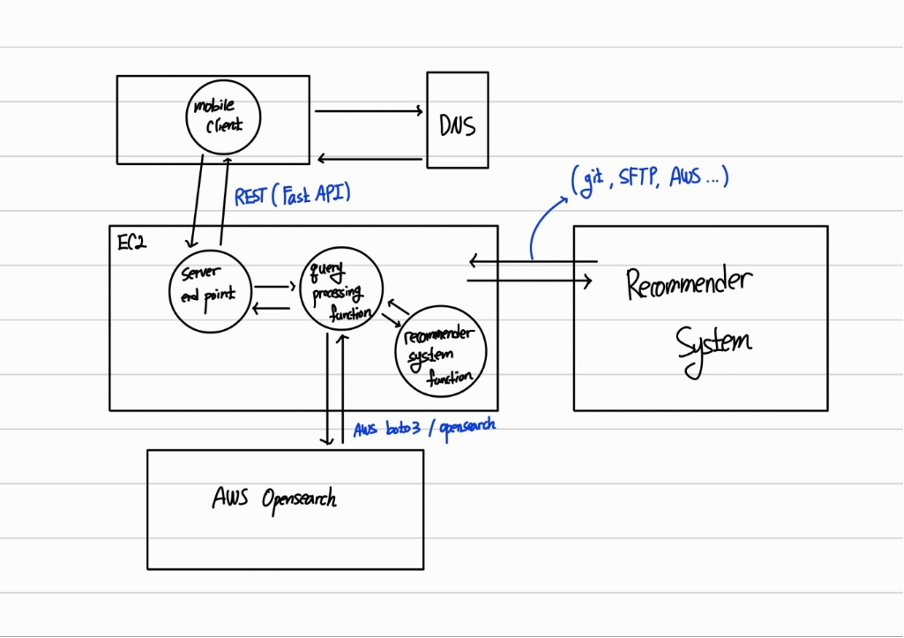 mobile
client
DNS
REST (Fast API)
(git, SFTP, AWS ...)
EC2
server
end point
query
processing
function
recommender
system
function
Recommender
System
AWS boto3 / opensearch
AWS Opensearch